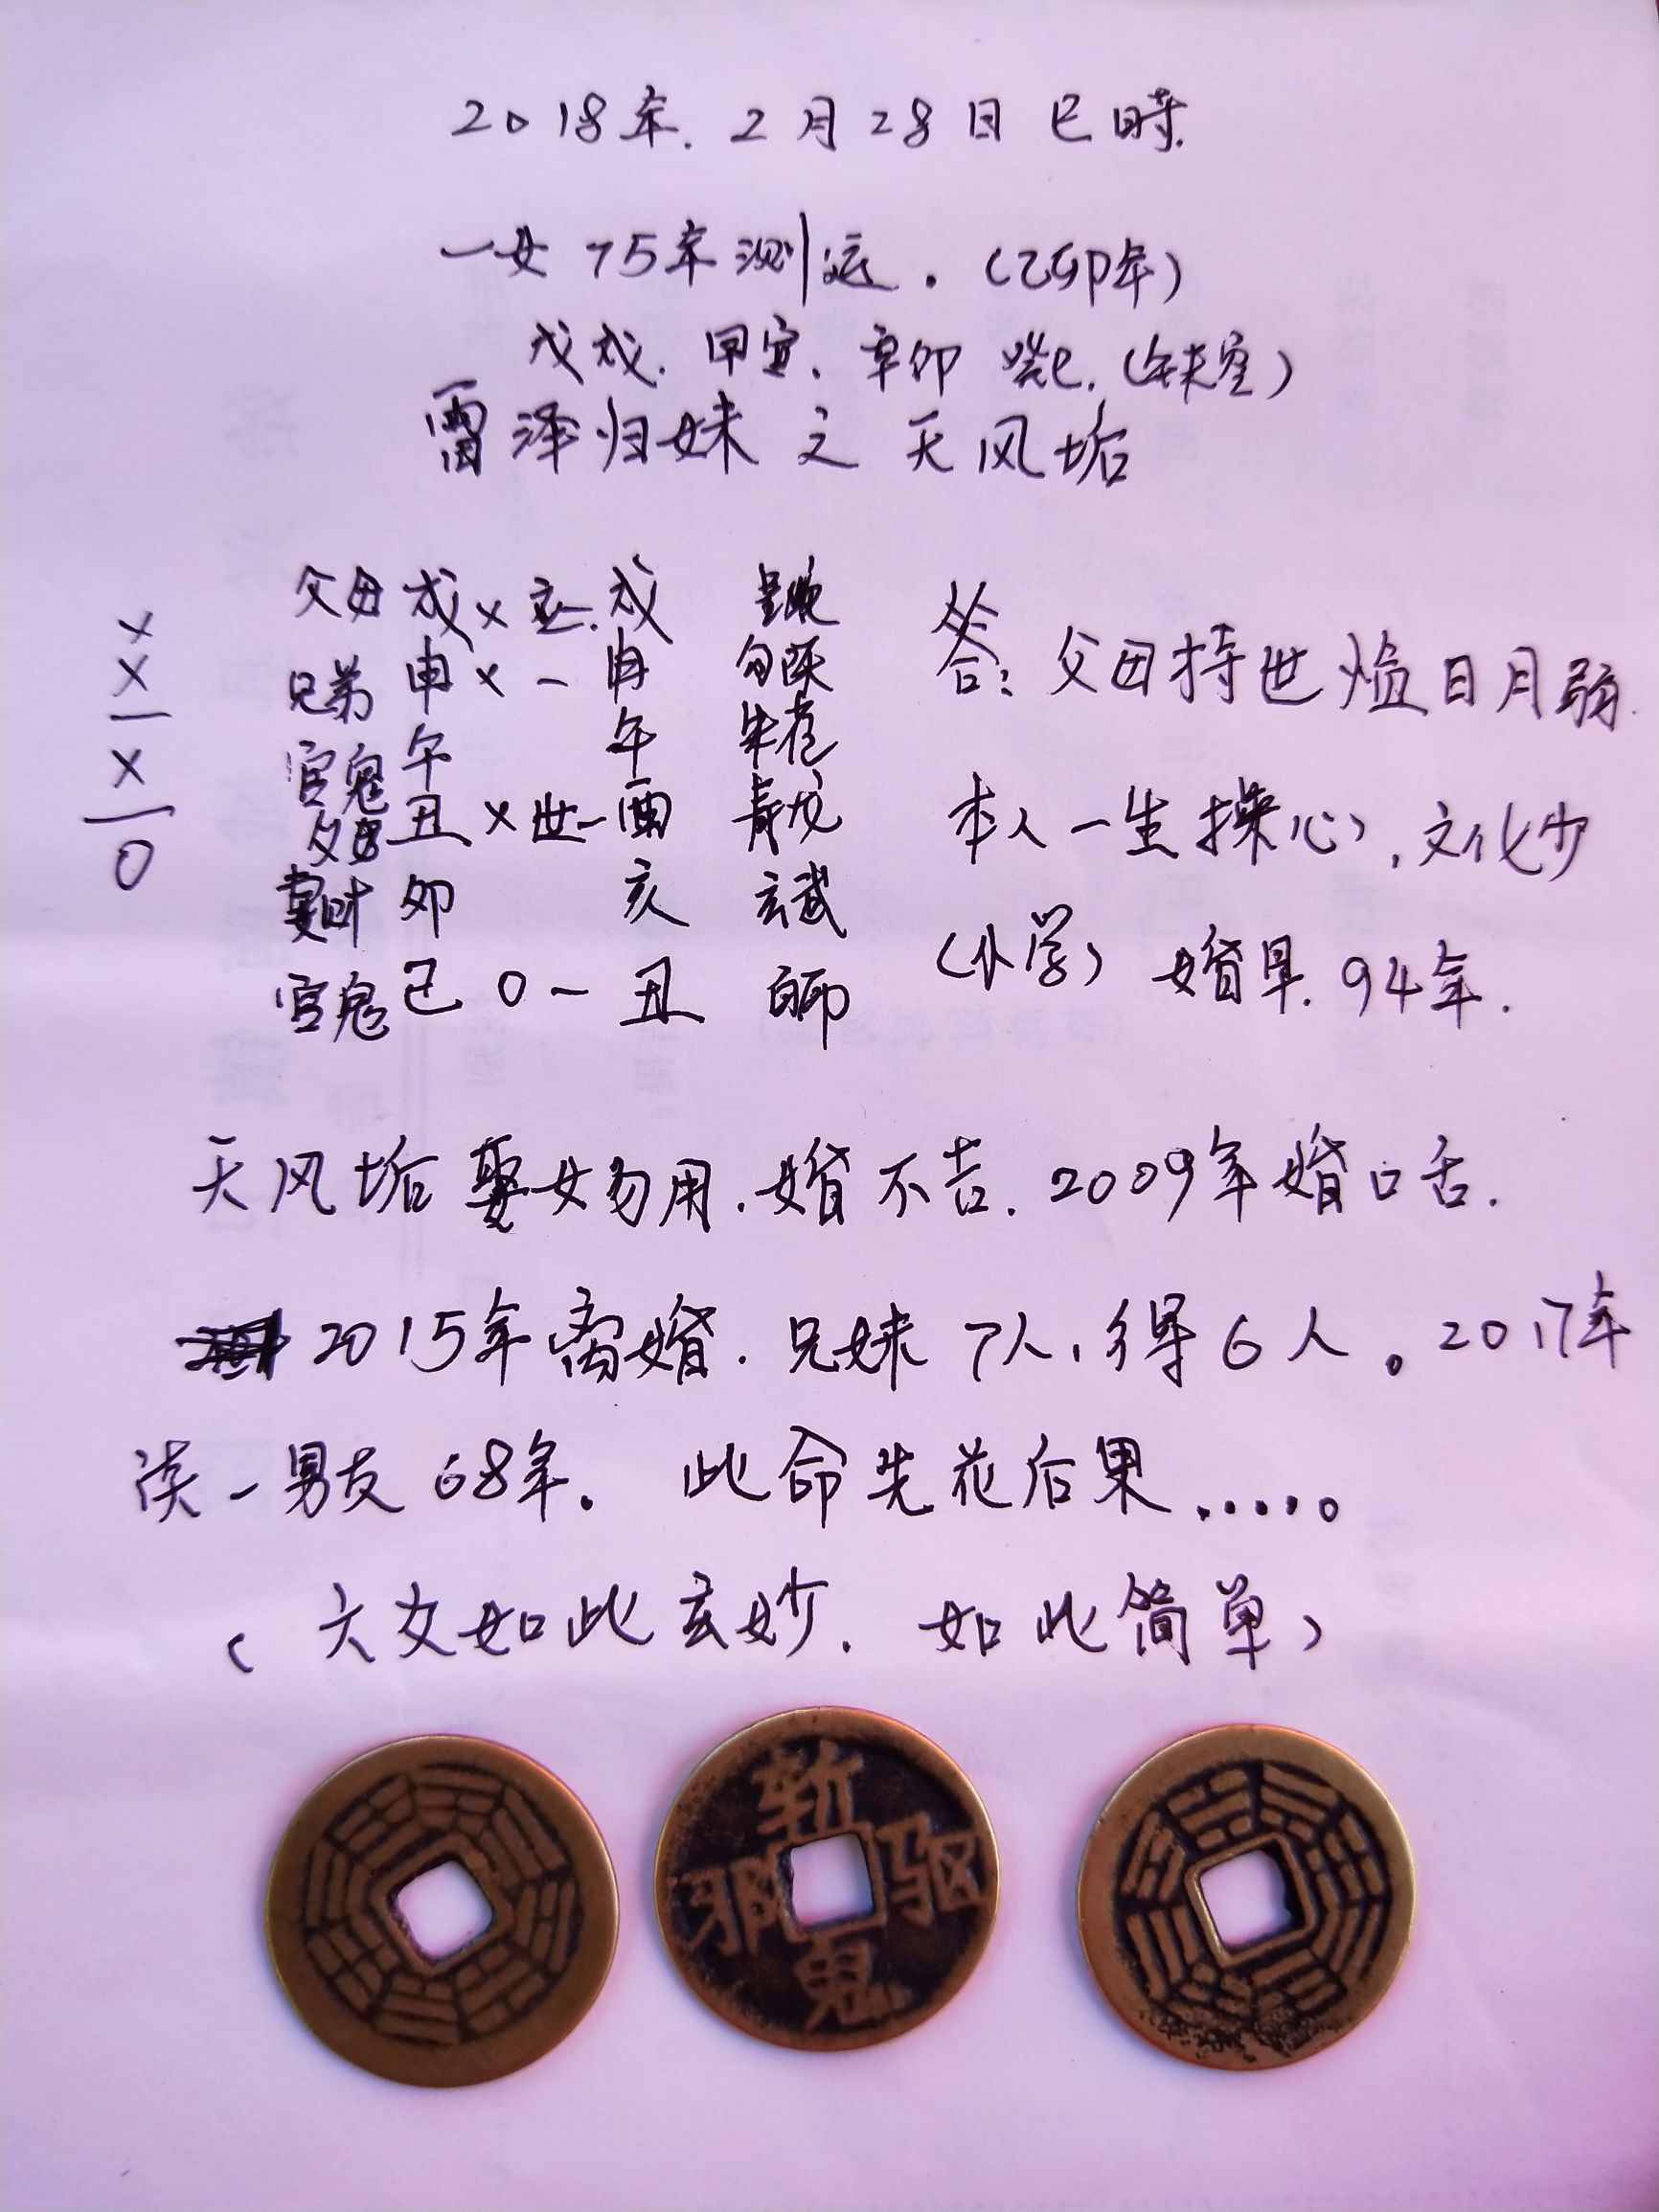 2018年.2月28日巳時.
一女75年测运.(乙卯年)
戊戌.甲寅.辛卯 癸巳.(午未空)
雷泽归妹之天风垢
父母戌×应.戌
兄弟申×-申 勾陈
官鬼午 午 朱雀
父母丑×世-酉 青龙
妻财卯 亥 玄武
官鬼巳0-丑 白虎
×
×
—
×
—
0
答:父母持世临日月弱.
本人一生操心,文化少
(小学)婚早.94年.
天风垢娶女勿用.婚不吉.2009年婚口舌.
2015年离婚.兄妹7人,得6人。2017年
谈一男友68年。此命先花后果.....。
(六爻如此玄妙.如此简单)
斩
邪 驱
鬼